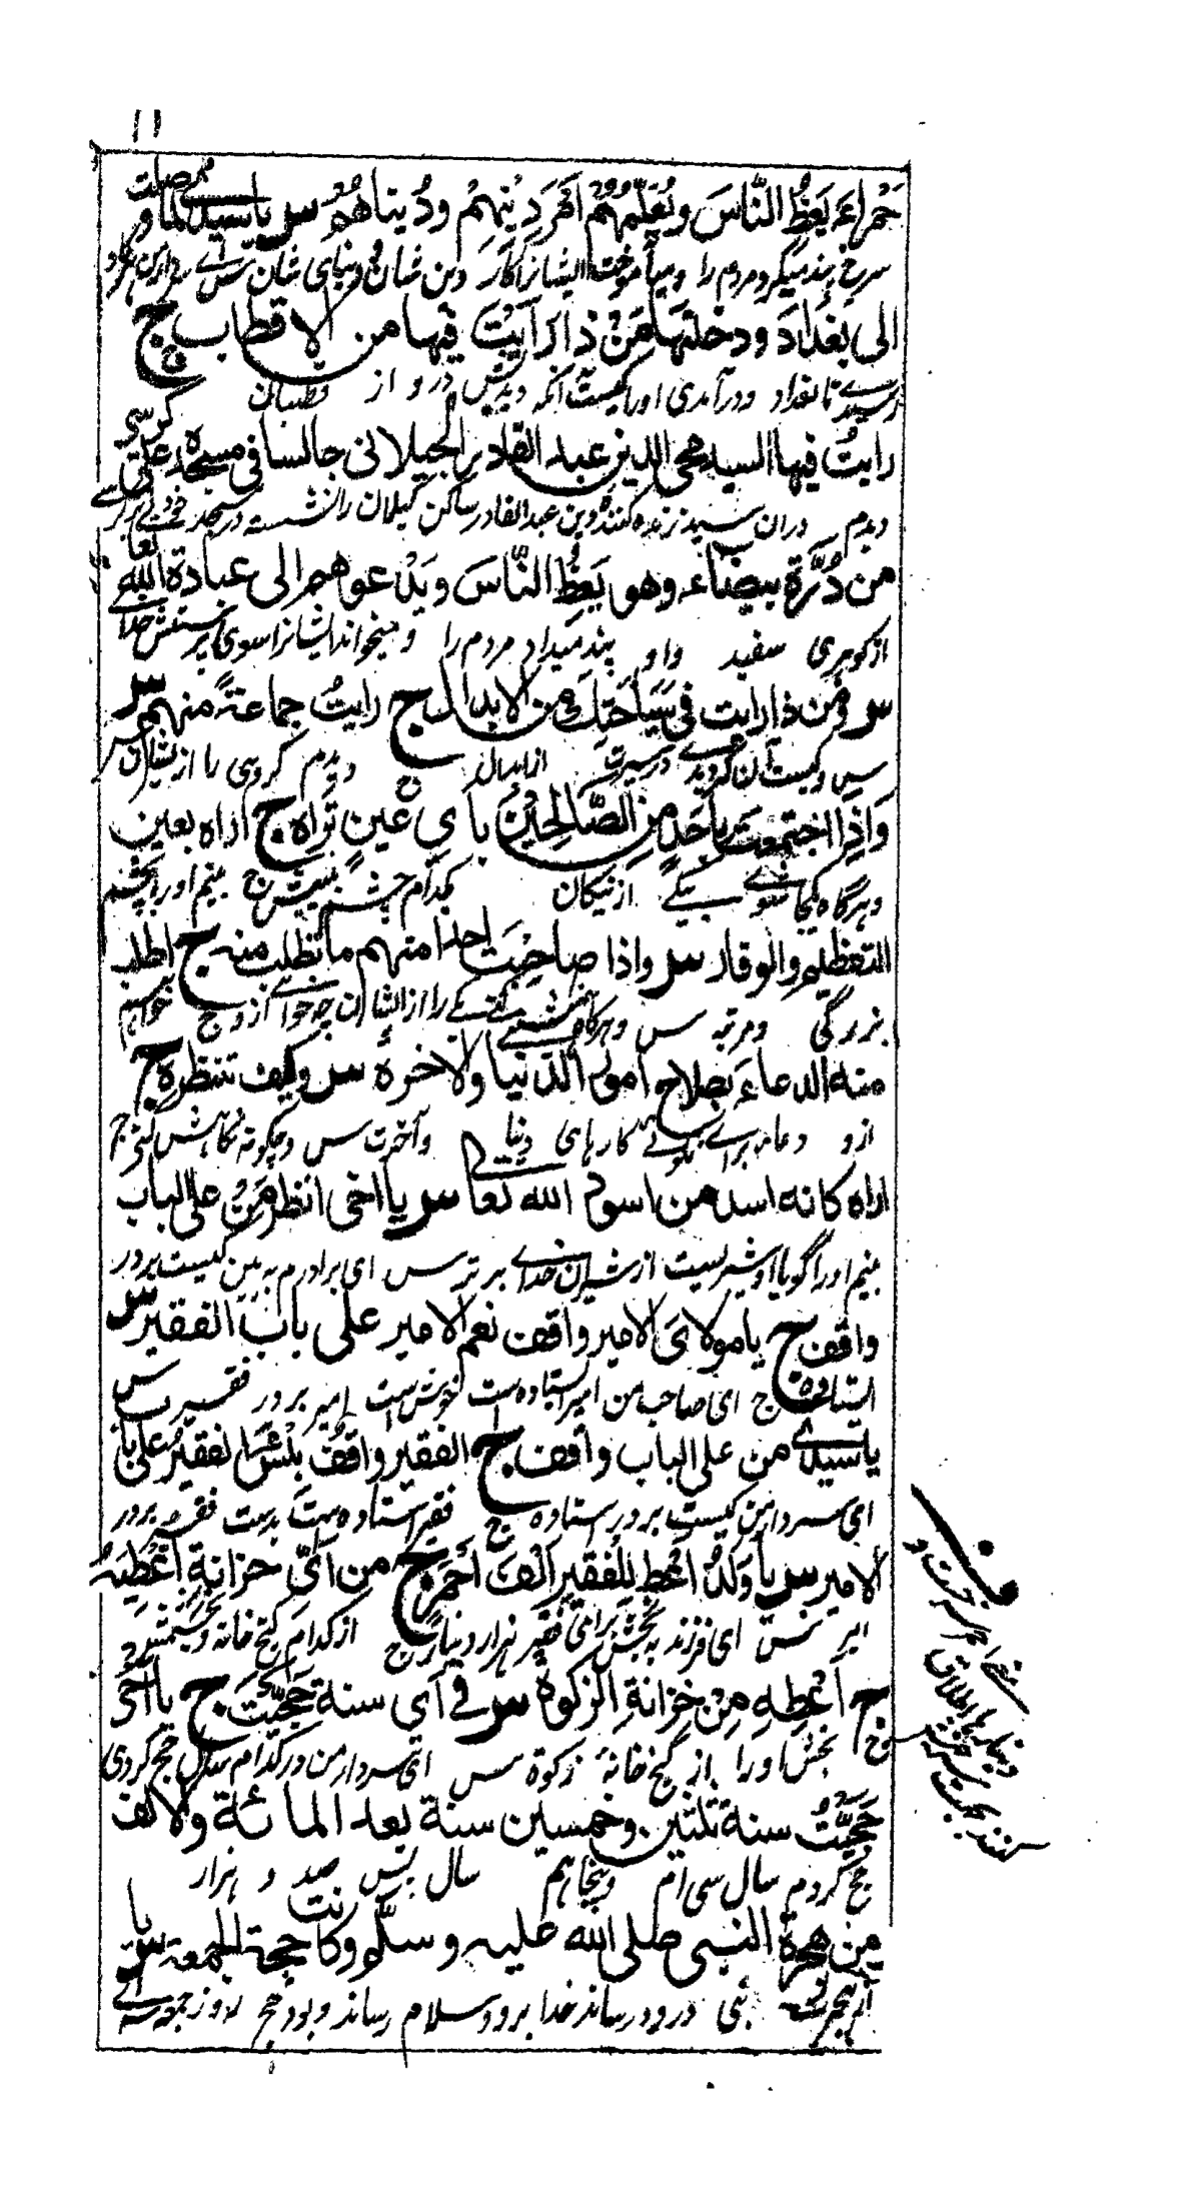 ۱۱
حمراء یعظ الناس و یعلمهم امر دینهم و دنیاهم س یا سیدی لما وصلت
سرخ پند میکرد مردم را و میآموخت ایشانرا کار دین شان و دنیای شان س ای
الی بغداد و دخلتها من ذا رایت فیها من الاقطاب ج
رسیدی تا بغداد و در آمدی او را کیست آنکه دیدیش درو از قطبان
رایت فیها السید محی الدین عبد القادر الجیلانی جالسا فی مسجده علی کرسی
دیدم دران سید زنده کننده دین عبد القادر ساکن گیلان را نشسته در مسجد خود بر کرسی
من درة بیضاء وهو یعظ الناس ویدعوهم الی عبادة الله تعا
از گوهری سفید و او پند میداد مردم را و میخواند ایشانرا سوی پرستش خدای
س و من ذا رایت فی سیاحتک من الابدال ج رایت جماعة منهم س
س و کیست آن که دیدی در سیرت از ابدال ج دیدم گروهی را از ایشان س
واذا اجتمعت باحد من الصالحین بای عین تراه ج اراه بعین
و هرگاه یکجا شوی بیکے از نیکان بکدام چشم بینیش ج بینم او را بچشم
التعظیم والوقار س واذا صاحبت احدا منهم ما تطلب منه ج اطلب
بزرگی و مرتبه س و هرگاه همنشینی کنی یکے را از ایشان چه خواهی ازو ج خواهم
منه الدعاء بصلاح امور الدنیا والاخرة س وکیف تنظره ج
ازو دعا برای نکوئی کارهای دنیا و آخرت س و چگونه نگاهش کنی ج
اراه کانه اسد من اسود الله تعا س یا اخی انظر من علی الباب
بینم او را گویا او شیریست از شیران خدای برتر س ای برادرم به بین کیست بر در
واقف ج یا مولای الامیر واقف نعم الامیر علی باب الفقیر س
ایستاده ج ای صاحب من امیر ایستاده است خوش است امیر بر در فقیر س
یا سیدی من علی الباب واقف ج الفقیر واقف بئس الفقیر علی باب
ای سردار من کیست بر در ستاده ج فقیر استاده است بد است فقیر بر در
الامیر س یا ولد اعط للفقیر الف احمر ج من ای خزانة اعطیه
امیر س ای فرزند به بخش برای فقیر هزار دینار ج از کدام گنج خانه
ج اعطه من خزانة الزکوة س فی ای سنة حججت ج یا اخی
بخش او را از گنج خانهٔ زکوة س ای سردار من در کدام سال حج کردی
حججت سنة ثلثین و خمسین سنة بعد المائة والالف
حج کردم سال سی ام و پنجاهم سال پس صد و هزار
من هجرة النبی صلی الله علیه وسلم وکانت حجة الجمعة س یا
از هجرت نبی درود رساند خدا برو و سلام رساند و بود حج روز جمعه س ای